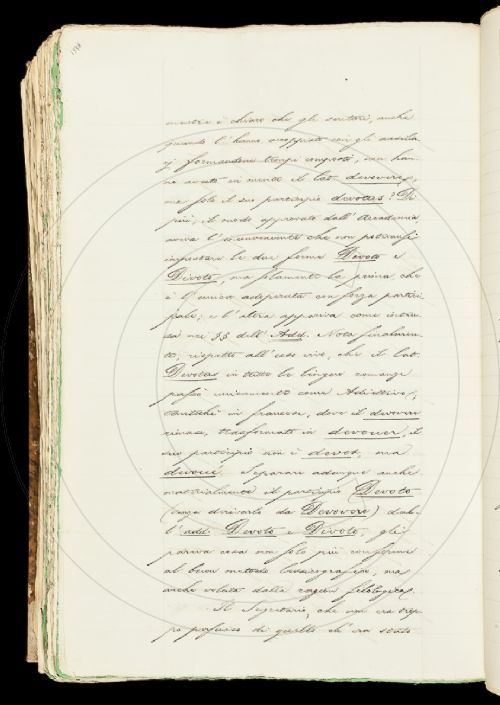 mentre è chiaro che gli scrittori, anche
quando l'hanno accoppiato cogli ausilia
rj formandone tempi composti, non han-
no avuto in mente il lat. devovere,
ma solo il suo participio devotus? Di
più, il modo approvato dall'Accademia
aveva l'inconveniente che non potevansi
impostare le due forme Devoto e
Divoto, ma solamente la prima, che
è l'unica adoperata con forza partici-
piale; e l'altra appariva come intru-
sa nei §§ dell'Add. Nota finalmen-
to, rispetto all'uso vivo, che il lat.
Devotus in tutte le lingue romanze
passò unicamente come Adiettivo;
tantochè in francese, dove il devovere
rimase, trasformato in devouer, il
suo participio non è devot, ma
devoué. Separare adunque anche
materialmente il participio Devoto
(senza derivarlo da Devovere) dal-
l'add. Devoto e Divoto, gli
pareva cosa non solo più conforme
al buon metodo lessicografico, ma
anche voluta dalla ragion filologica.
Il Segretario, che non era trop-
po persuaso di quello ch'era stato